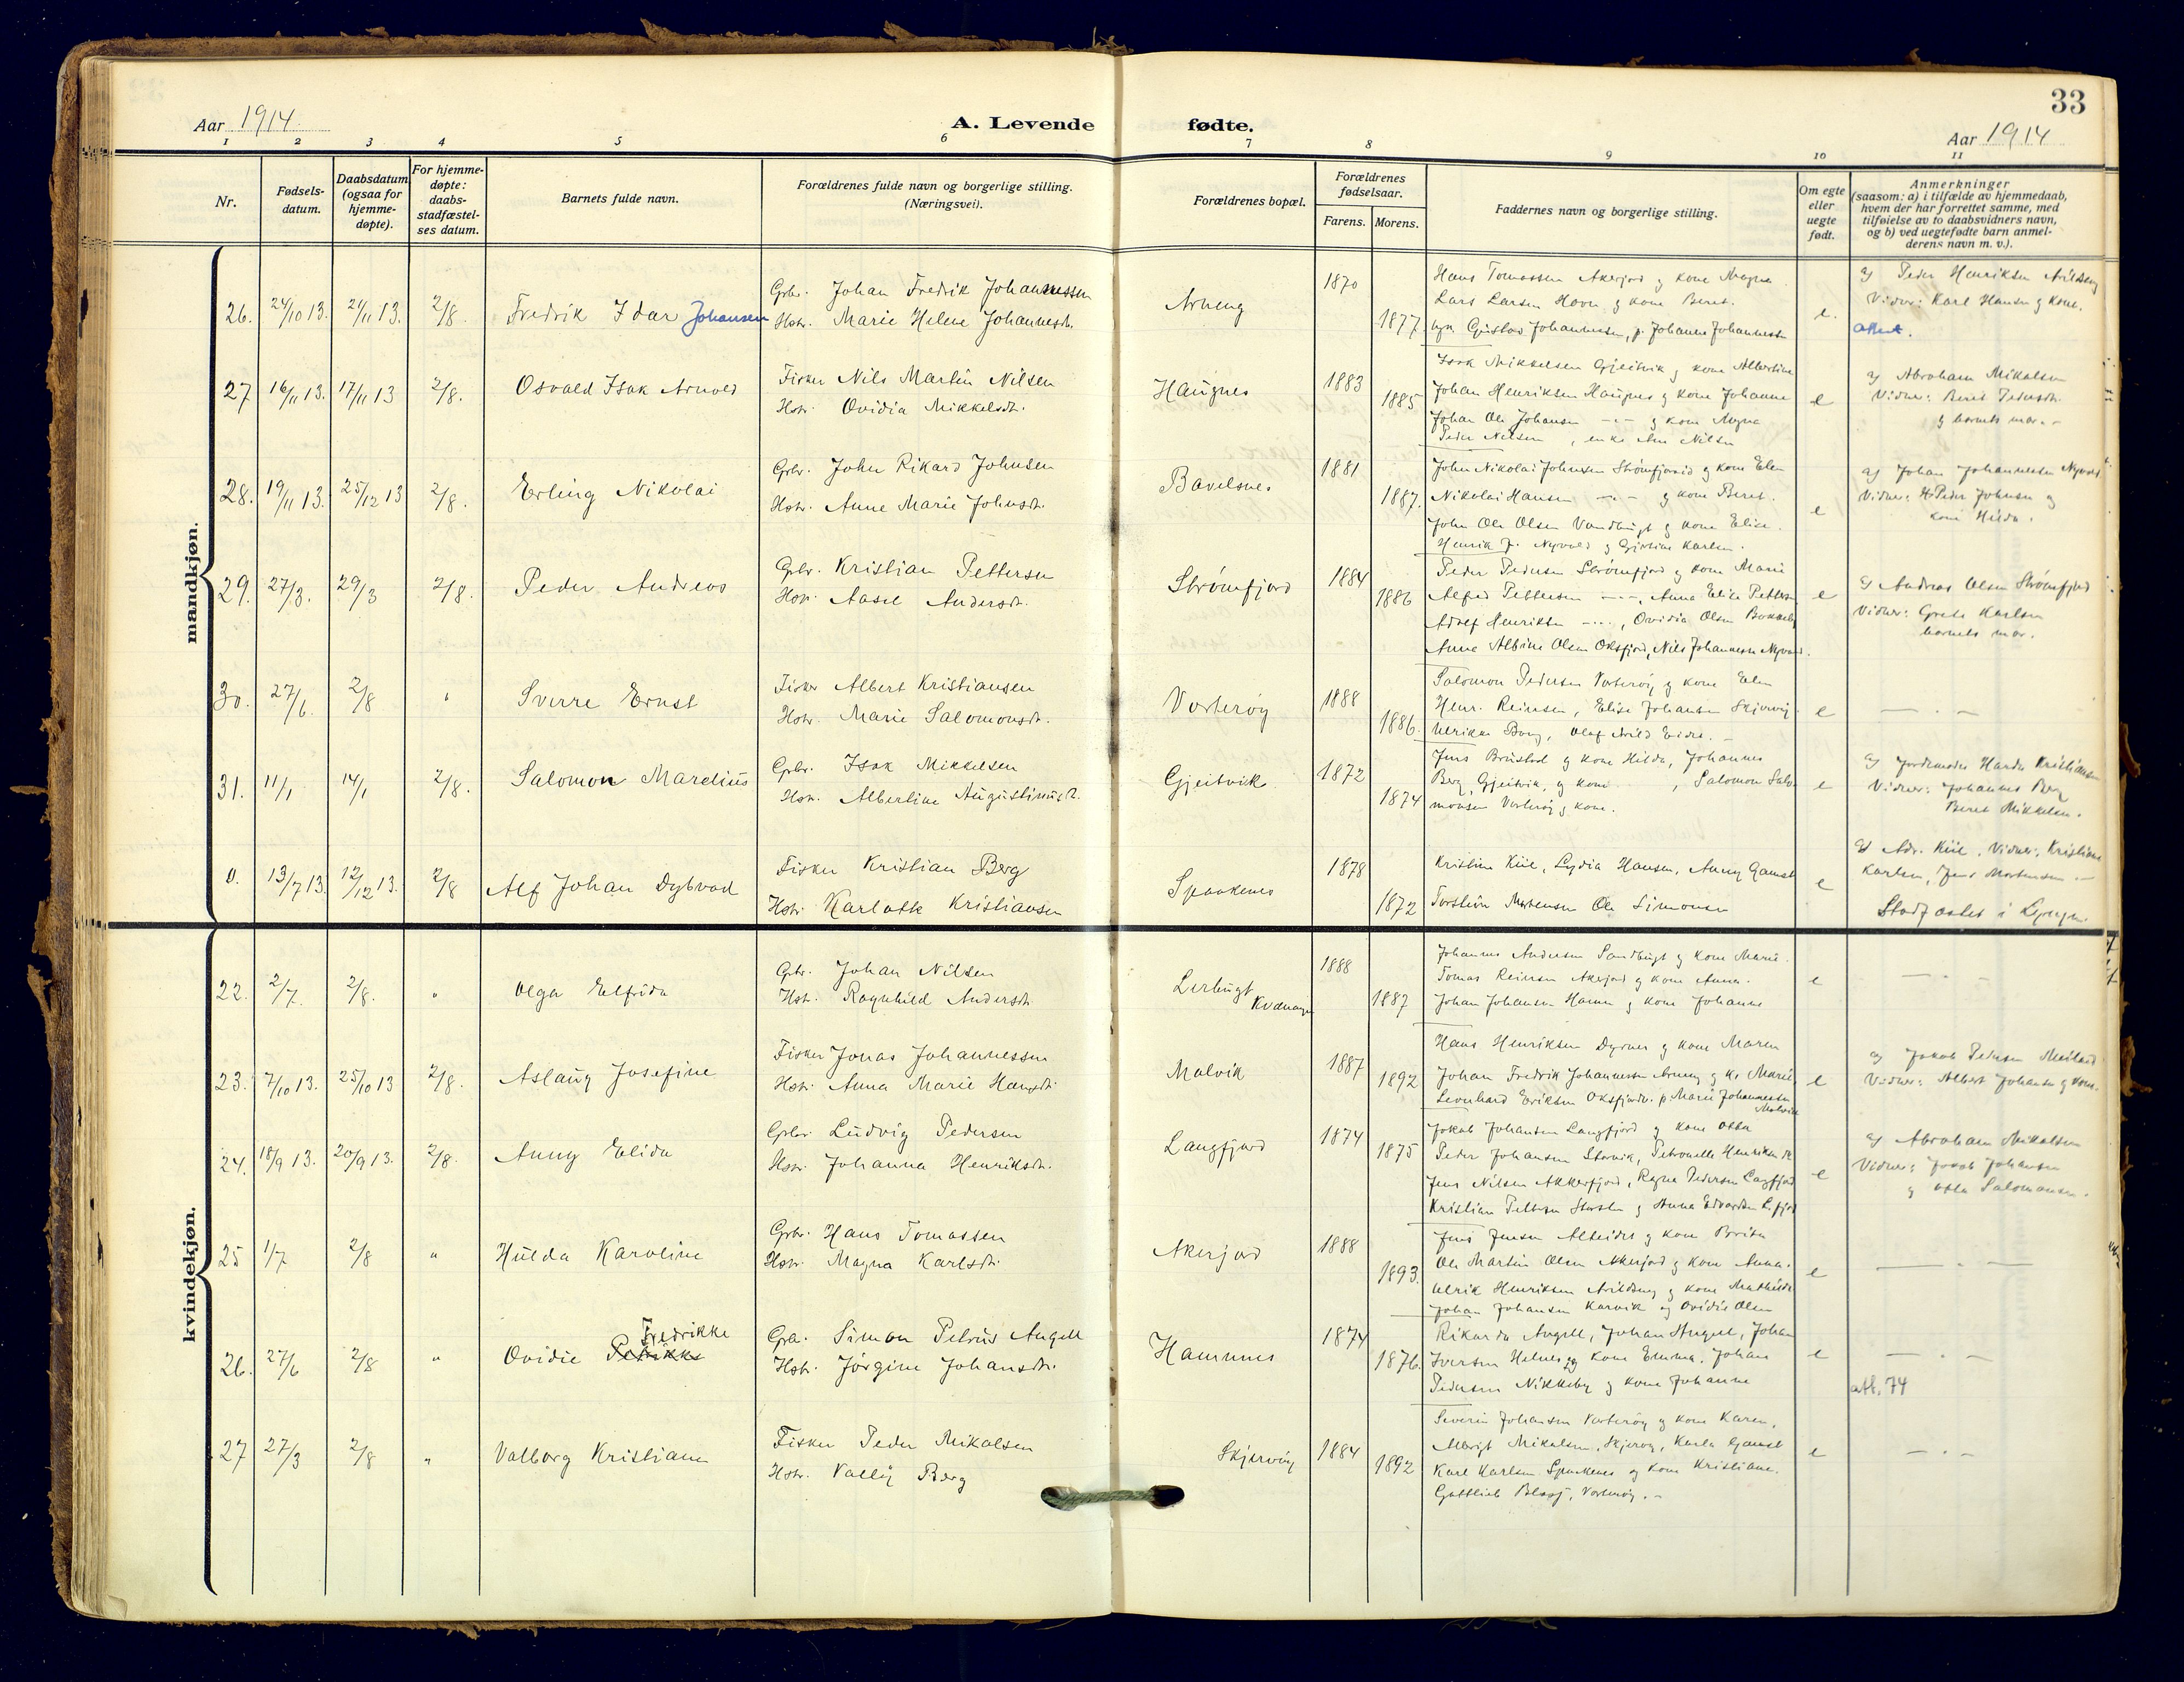 33
Aar 1914
A. Levende fødte.
Aar 1914
1 2 3 4 5 6 7 8 9 10 11
Nr.
Fødsels-
datum.
Daabsdatum
(ogsaa for
hjemme-
døpte).
For hjemme-
døpte:
daabs-
stadfæstel-
ses datum.
Barnets fulde navn.
Forældrenes fulde navn og borgerlige stilling.
(Næringsvei).
Forældrenes bopæl.
Forældrenes
fødselsaar.
Farens. Morens.
Faddernes navn og borgerlige stilling.
Om egte
eller
uegte
født.
Anmerkninger
(saasom: a) i tilfælde av hjemmedaab,
hvem der har forrettet samme, med
tilføielse av to daabsvidners navn,
og b) ved uegtefødte barn anmel-
derens navn m. v.).
mandkjøn.
26. 24/10 13. 21/11 13. 2/8. Fredrik Idar Johansen
Gbr. Johan Fredrik Johannessen
Hstr. Marie Helene Johannesdt.
Arneng 1870 1877.
Hans Tomassen Akerjord og kone Magna
Lars Larsen Havn og kone Beret.
Gustav Johannessen, p. Johanne Johannessen
e.
a) Peder Henriksen Arildseng
Vidner: Karl Hansen og kone.
27 16/11 13. 17/11 13 2/8. Osvald Isak Arnold
Fisker Nils Martin Nilsen
Hstr. Ovidia Mikkelsdt.
Haugnes 1883 1885
Isak Mikkelsen Gjeitvik og kone Albertine
Johan Henriksen Haugnes og kone Johanne
Johan Ole Johansen -"- og kone Magna
Peder Nilsen, enke Ane Nilsen
e
a) Abraham Mikalsen
Vidner: Beret Pedersdt.
og barnets mor.-
28. 19/11 13. 25/12 13 2/8. Erling Nikolai
Gbr. John Rikard Johnsen
Hstr. Anne Marie Johnsdt.
Bavelsnes 1881 1887.
John Nikolai Johnsen Strømfjord og kone Elen
Nikolai Hansen -"- og kone Beret.
John Ole Olsen Vandbugt og kone Elise.
Henrik J. Nyvold og Gjertine Karlsen.
e
a) Johan Johannesen Nyvold
Vidner: H. Peder Johnsen og
kone Hilda.
29. 27/3. 29/3 2/8. Peder Andreas
Gbr. Kristian Pettersen
Hstr. Aasel Andersdt.
Strømfjord 1884 1886
Peder Pedersen Strømfjord og kone Marie
Alfred Pettersen -"-, Anna Elise Pettersen
Adolf Henriksen -"-, Ovidia Olsen Bakkeby
Anna Albine Olsen Oksfjord, Nils Johannesen Nyvold.
e
a) Andreas Olsen Strømfjord
Vidner: Grete Karlsen
barnets mor.
30. 27/6. 2/8 " Sverre Ernst
Fisker Albert Kristiansen
Hstr. Marie Salomonsdt.
Vorterøy 1888 1886.
Salomon Pedersen Vorterøy og kone Elen
Henr. Reiersen, Elise Johansen Skjervøy
Ulrikke Berg, Olaf Arild Eide.-
e
31. 11/1 14/1 2/8. Salomon Marelius
Gbr. Isak Mikkelsen
Hstr. Albertine Augustinusdt.
Gjeitvik 1872 1874
Jens Brustad og kone Hilda, Johannes
Berg, Gjeitvik, og kone , Salomon Salo-
monsen Vorterøy og kone.
e
a) Jordemoder Harda Kristiansen
Vidner: Johannes Berg
Beret Mikkelsen.
0. 13/7 13. 12/12 13. 2/8 Alf Johan Dybvad
Fisker Kristian Berg
Hstr. Karlotte Kristiansen
Spaakenes 1878 1872
Kristine Kiil, Lydia Hansen, Anny Gamst
Torstein Mortensen Ole Simonsen
e
a) Adr. Kiil. Vidner: Kristiane
Karlsen, Jens Mortensen.-
Stadfæstet i Lyngen.
kvindekjøn.
22. 2/7. 2/8. " Olga Elfrida
Gbr. Johan Nilsen
Hstr. Ragnhild Andersdt.
Lerbugt
Kvænangen 1888 1887
Johannes Andersen Sandbugt og kone Marie.
Tomas Reiersen Akerjord og kone Anna.
Johan Johansen Hamn og kone Johanne
e
23. 7/10 13. 25/10 13 2/8. Aslaug Josefine
Fisker Jonas Johannessen
Hstr. Anna Marie Hansdt.
Malvik 1887 1892
Hans Henriksen Dyrnes og kone Maren
Johan Fredrik Johannessen Arneng og k. Marie
Leonhard Eriksen Oksfjord. p Marie Johannessen
Malvik
e
a) Jakob Pedersen
Vidner: Albert Johansen og kone.
24. 18/9 13. 20/9 13. 2/8. Anny Elida
Gbr. Ludvig Pedersen
Hstr. Johanna Henriksdt.
Langfjord 1874 1875
Jakob Johansen Langfjord og kone Otta
Peder Johansen Storvik, Petronelle Henriksen
Jens Nilsen Akkerfjord, Ragna Pedersen Langfjord
Kristian Pettersen og Anna Edvardsen L.fjord
e
a) Abraham Mikalsen
Vidner: Jacob Johansen
og Otta Salomonsen.
25 1/7 2/8 " Hulda Karoline
Gbr. Hans Tomassen
Hstr. Magna Karlsdt.
Akerjord 1888 1893.
Jens Jensen Alteidet og kone Brita
Ole Martin Olsen Akerjord og kone Anna.
Ulrik Henriksen Arildseng og kone Mathilde
Johan Johansen Karvik og Ovidie Olsen
e
26. 27/6 2/8 " Ovidie Petrikke Fredrikke
Gbr. Simon Petrus Angell
Hstr. Jørgine Johansdt.
Hamnnes 1874 1876.
Rikarda Angell, Johan Angell, Johan
Iversen Helnes og kone Emma. Johan
Pedersen Nikkeby og kone Johanne
e
att. 74
27 27/3 2/8 " Valborg Kristiane
Fisker Peder Mikalsen
Hstr. Vally Berg
Skjervøy 1884 1892
Severin Johansen Vorterøy og kone Karen.
Albrigt Mikalsen, Skjervøy, Karla Gamst
Karl Karlsen Spaakenes og kone Kristiane.
Gottlieb , Vorterøy.-
e